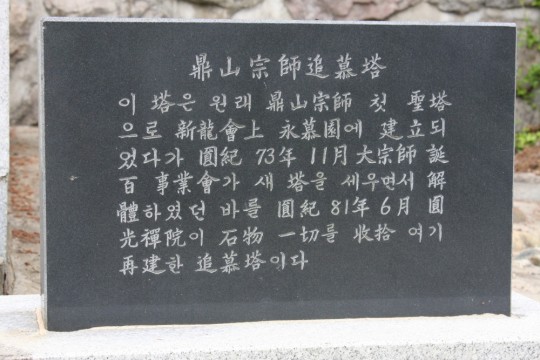 鼎山宗師追慕塔
이 塔은 원래 鼎山宗師 첫 聖塔
으로 新龍會上 永慕園에 建立되
었다가 圓紀 73年 11月 大宗師 誕
百 事業會가 새 塔을 세우면서 解
體하였던 바를 圓紀 81年 6月 圓
光禪院이 石物 一切를 收拾 여기
再建한 追慕塔이다